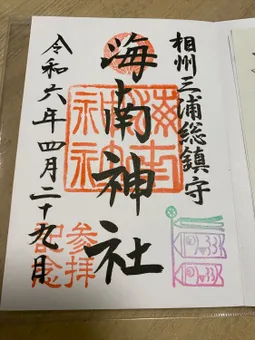 相州三浦総鎮守
海南神社
令和六年四月二十九日
参拝
記念